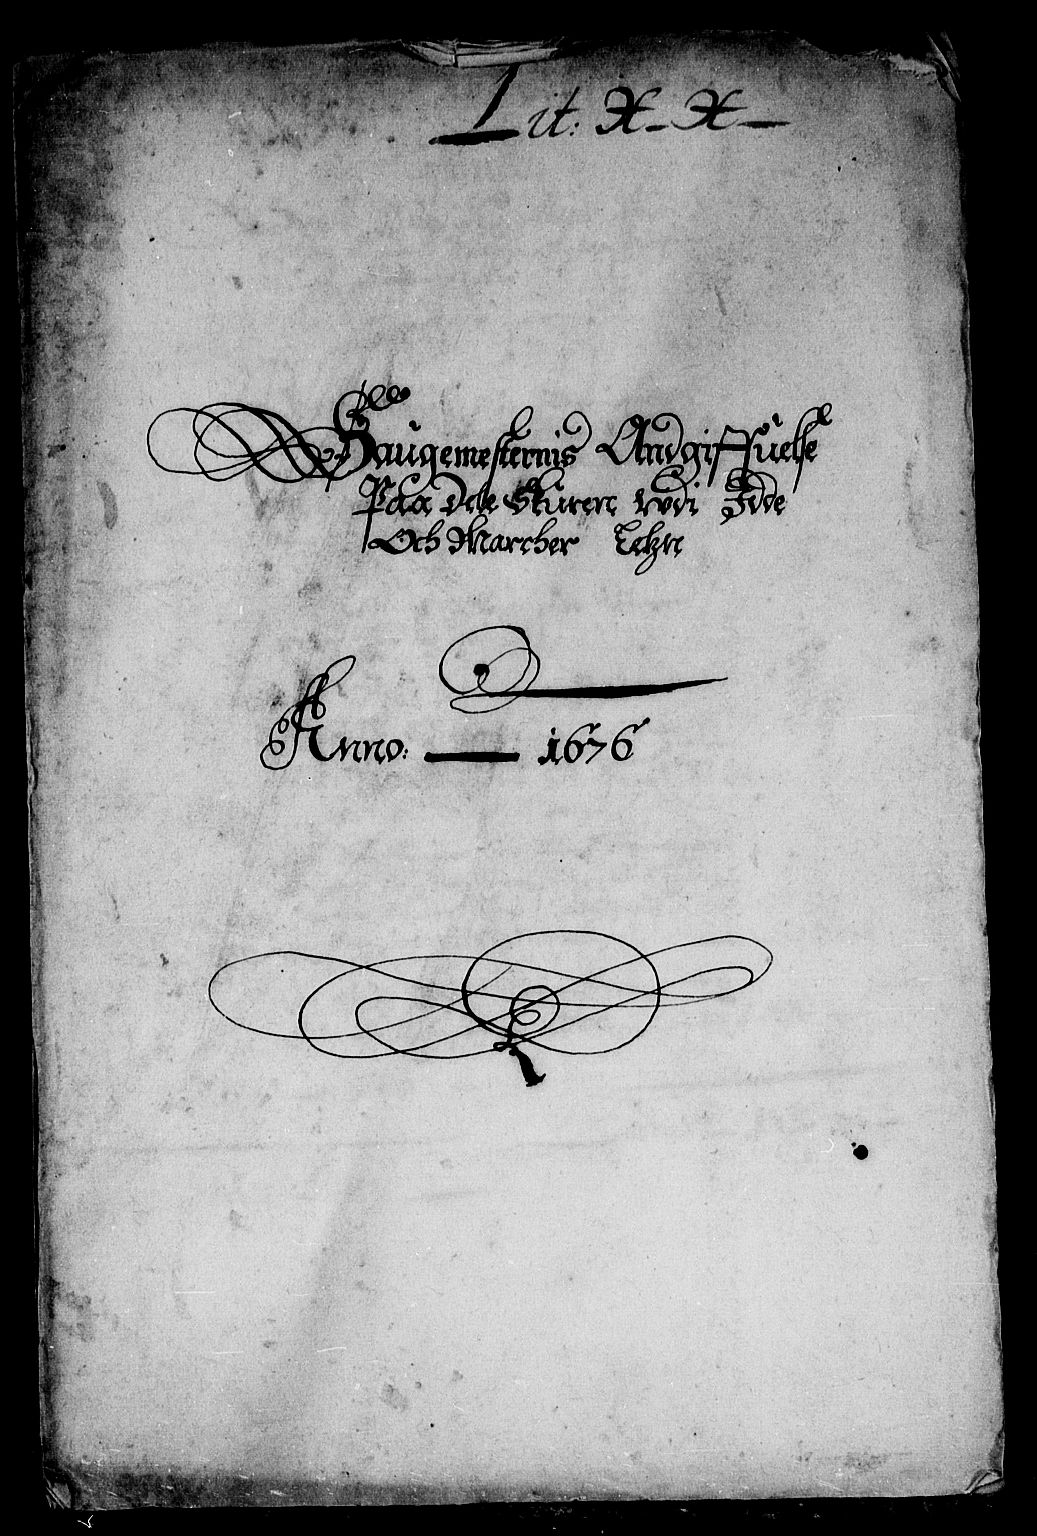 Lit: X_X_
Saugemesternis Andgiffuelse
Paa dele Skuren udi Idde
Och Marcher Lehn
Anno: 1676